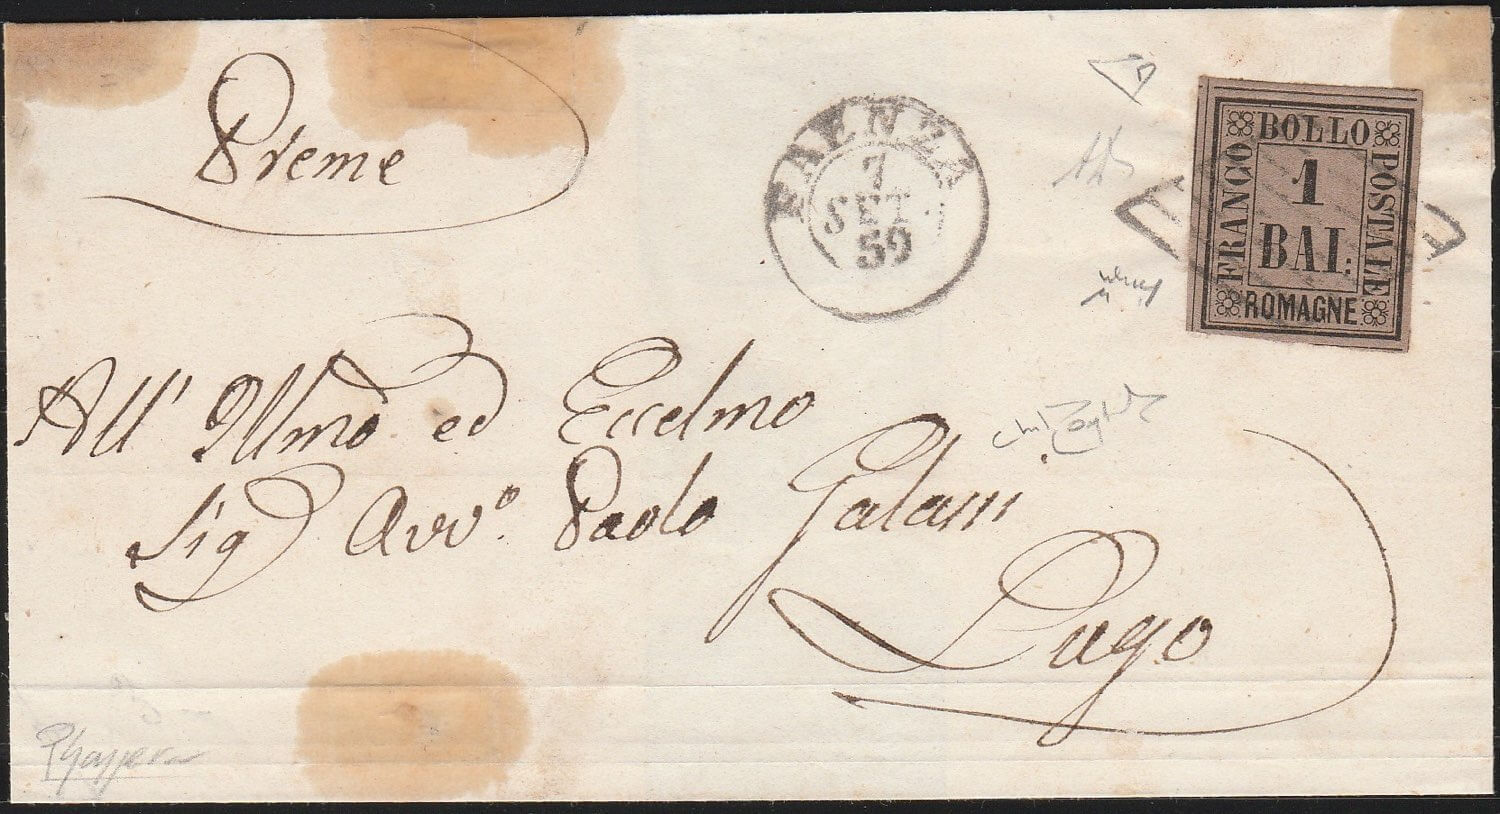 Preme
FAENZA
7
SET.
59
BOLLO
FRANCO
POSTALE
1
BAI:
ROMAGNE
All' Illmo ed Eccelmo
Sig Avvo. Paolo
Lugo